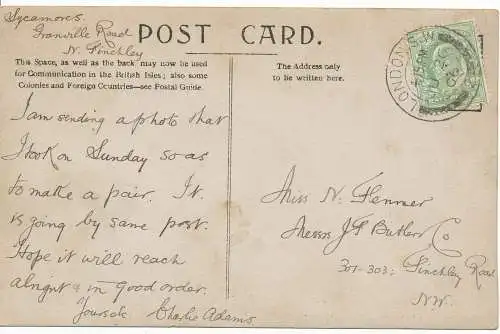 Sycamores.
Granville Road
N. Finchley
POST CARD.
This Space, as well as the back may now be used
for Communication in the British Isles; also some
Colonies and Foreign Countries—see Postal Guide.
The Address only
to be written here.
LONDON
I am sending a photo that
I took on Sunday so as
to make a pair. It
is going by same post.
Hope it will reach
alright & in good order.
Yours &c Charlie Adams.
Miss N. Flenner
Messrs J F Butler & Co
301-303, Finchley Road
N.W.